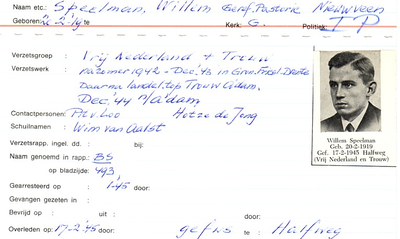 Naam etc.: Speelman, Willem Geref. Pastorie Nieuwveen
Geboren: 2-2-'19 te Kerk: G. Politiek: I P
Verzetsgroep : Vrij Nederland + Trouw
Verzetswerk : na zomer 1942 - Dec. '43 in Gron. Friesl. Drente
Daarna landel. top Trouw
Dec. '44 A'dam
Contactpersonen: Hotze de Jong
Schuilnamen : Wim van Aalst
Verzetsrapp. ingel. dd. : bij:
Naam genoemd in rapp.: BS
op bladzijde: 493,
Gearresteerd op : 1-45 door:
Gevangen gezeten in :
Bevrijd op : uit : door:
Overleden op: 17-2-'45 door: gefus. te Halfweg
Willem Speelman
Geb. 20-2-1919
Gef. 17-2-1945 Halfweg
(Vrij Nederland en Trouw)